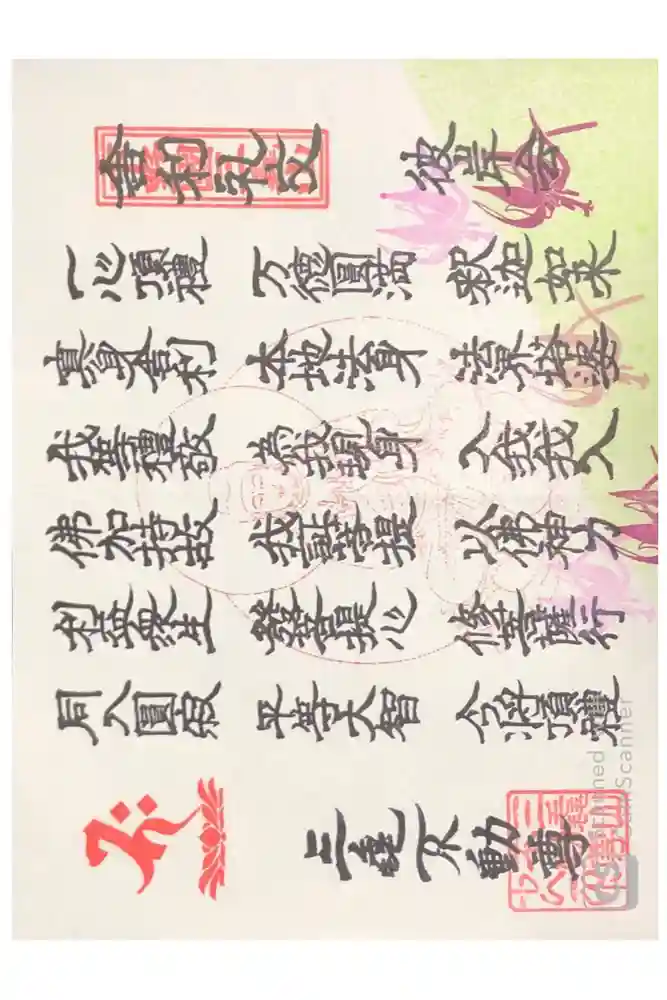 舎利礼文 彼岸会
一心頂禮 万徳圓満 釈迦如来
真身舎利 本地法身 法界塔婆
我等禮敬 為我現身 入我我入
佛加持故 我証菩提 以佛神力
利益衆生 發菩提心 修菩薩行
同入圓寂 平等大智 今将頂禮
不動尊
CS